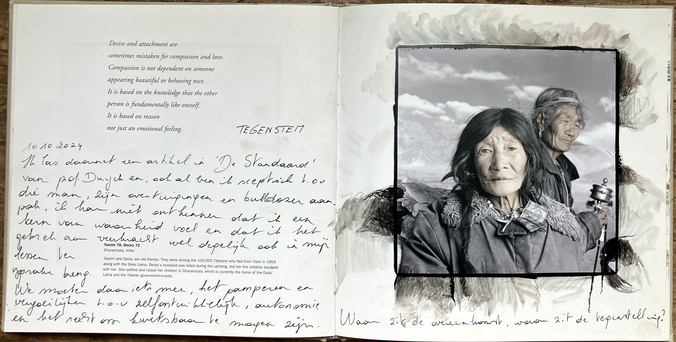 Desire and attachment are
sometimes mistaken for compassion and love.
Compassion is not dependent on someone
appearing beautiful or behaving nice.
It is based on the knowledge that the other
person is fundamentally like oneself.
It is based on reason
not just an emotional feeling.
TEGENSTEM
10.10.2024
Ik las daarnet een artikel in 'De Standaard'
van prof Duyck en, ook al ben ik sceptisch t.o.v
die man, zijn overtuigingen en bulldozer aan-
pak, ik kan niet ontkennen dat ik een
kern van waarheid voel en dat ik het
gebrek aan veerkracht wel degelijk ook in mijn
lessen ter
sprake breng.
Tamdin 78, Decky 72
Dharamsala, India
Tamdin and Decky are old friends. They were among the 100,000 Tibetans who fled from Tibet in 1959
along with the Dalai Lama. Decky's husband was killed during the uprising, but her five children escaped
with her. She settled and raised her children in Dharamsala, which is currently the home of the Dalai
Lama and the Tibetan government-in-exile.
We moeten daar iets mee, het pamperen en
vergelijken t.o.v zelfontwikkeling, autonomie
en het recht om kwetsbaar te mogen zijn.
Waar zit de overeenkomst, waar zit de tegenstelling?